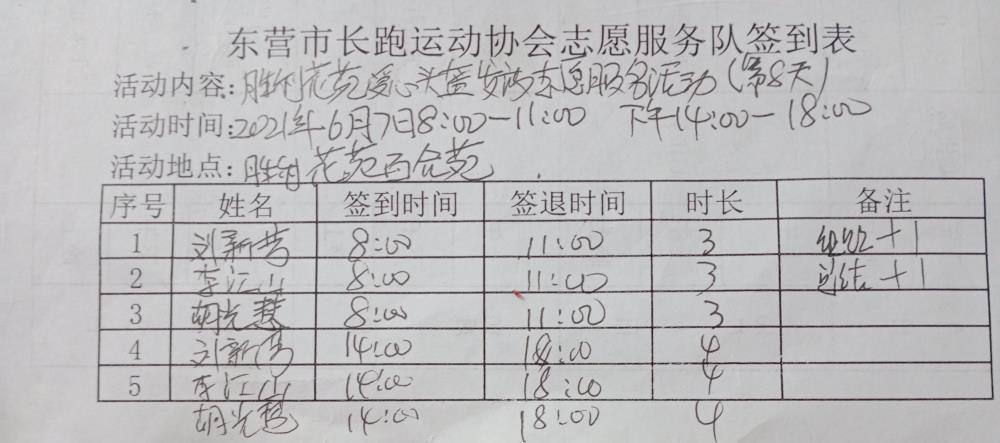 东营市长跑运动协会志愿服务队签到表
活动内容:胜利花苑爱心头盔发放志愿服务活动(第8天)
活动时间:2021年6月7日8:00-11:00 下午14:00-18:00
活动地点:胜利花苑百合苑
序号 姓名 签到时间 签退时间 时长 备注
1 刘新芳 8:00 11:00 3 组织+1
2 李江山 8:00 11:00 3 总结+1
3 胡光慧 8:00 11:00 3
4 刘新芳 14:00 18:00 4
5 李江山 14:00 18:00 4
胡光慧 14:00 18:00 4